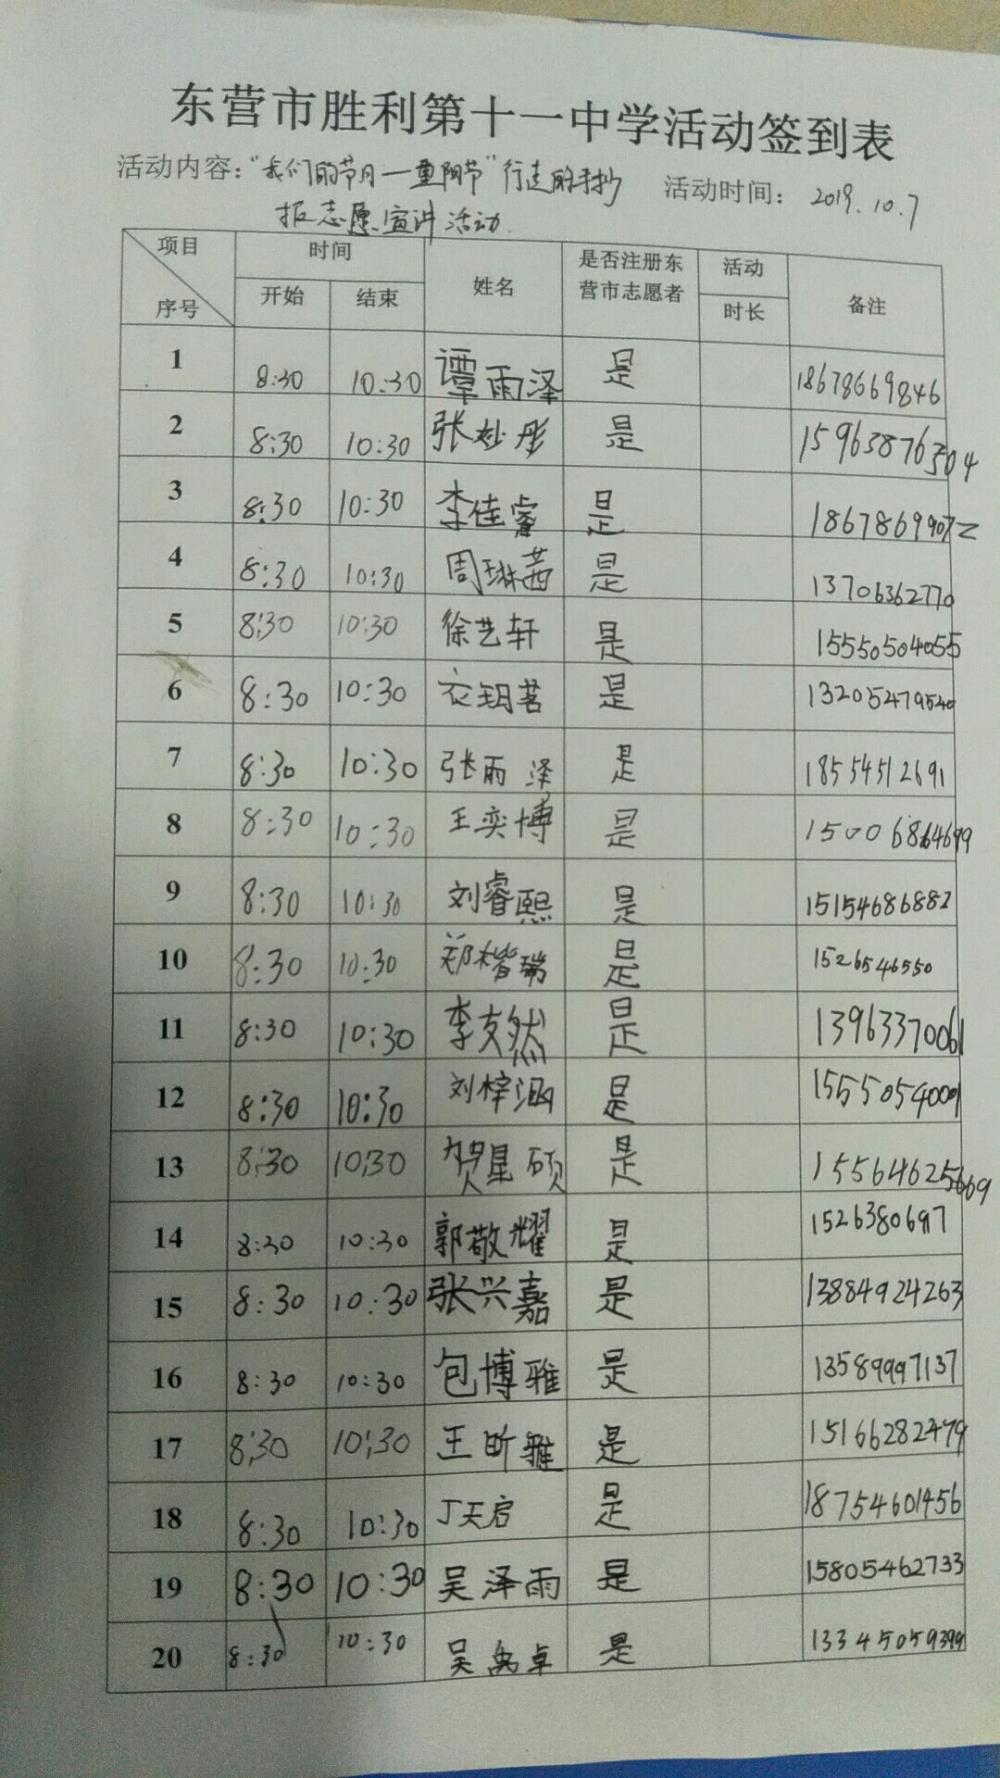 东营市胜利第十一中学活动签到表
活动内容：“我们的节日—重阳节”行走的手抄 活动时间： 2019.10.7
报志愿宣讲活动.
项目 时间 姓名 是否注册东 活动 备注
序号 开始 结束 营市志愿者 时长
1 8:30 10:30 谭雨泽 是 18678669846
2 8:30 10:30 张妙彤 是 15963876304
3 8:30 10:30 李佳睿 是 18678699072
4 8:30 10:30 周琳茜 是 13706362770
5 8:30 10:30 徐艺轩 是 15550504055
6 8:30 10:30 衣玥茗 是 13205479540
7 8:30 10:30 张雨泽 是 18554512691
8 8:30 10:30 王奕博 是 15006864699
9 8:30 10:30 刘睿熙 是 15154686882
10 8:30 10:30 郑楷瑞 是 1526546550
11 8:30 10:30 李文然 是 13963370061
12 8:30 10:30 刘梓涵 是 15550540001
13 8:30 10:30 贺星硕 是 15564625669
14 8:30 10:30 郭敬耀 是 1526380697
15 8:30 10:30 张兴嘉 是 13884924263
16 8:30 10:30 包博雅 是 13589997137
17 8:30 10:30 王昕雅 是 15166282479
18 8:30 10:30 丁天启 是 18754601456
19 8:30 10:30 吴泽雨 是 15805462733
20 8:30 10:30 吴禹卓 是 13345059399